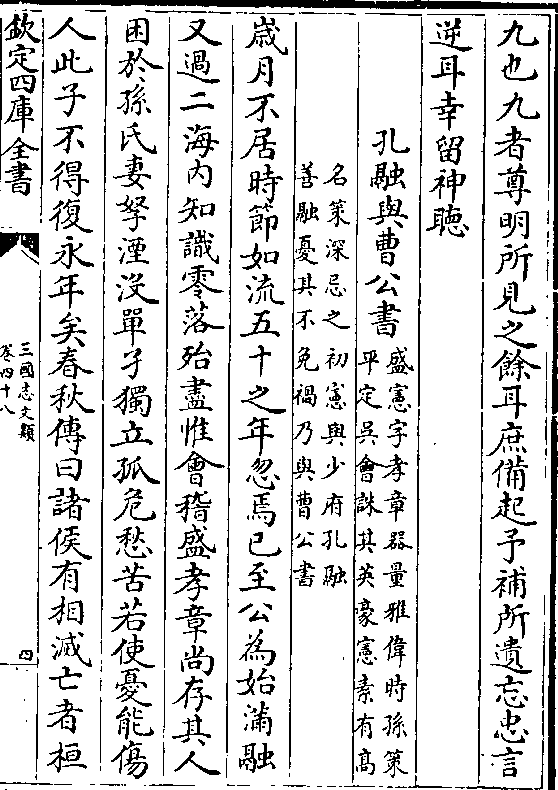 九也九者尊明所見之餘耳庶備起予補所遺忘忠言
逆耳幸留神聽
孔融與曹公書
盛憲字孝章器量雅偉時孫策
平定吳會誅其英豪憲素有髙
名策深忌之初憲與少府孔融
善融憂其不免禍乃與曹公書
嵗月不居時節如流五十之年忽焉已至公為始滿融
又過二海内知識零落殆盡惟會稽盛孝章尚存其人
困於孫氏妻孥湮没單孑獨立孤危愁苦若使憂能傷
人此子不得復永年矣春秋傳曰諸侯有相滅亡者桓
欽定四庫全書
三國志文類
卷四十八
四